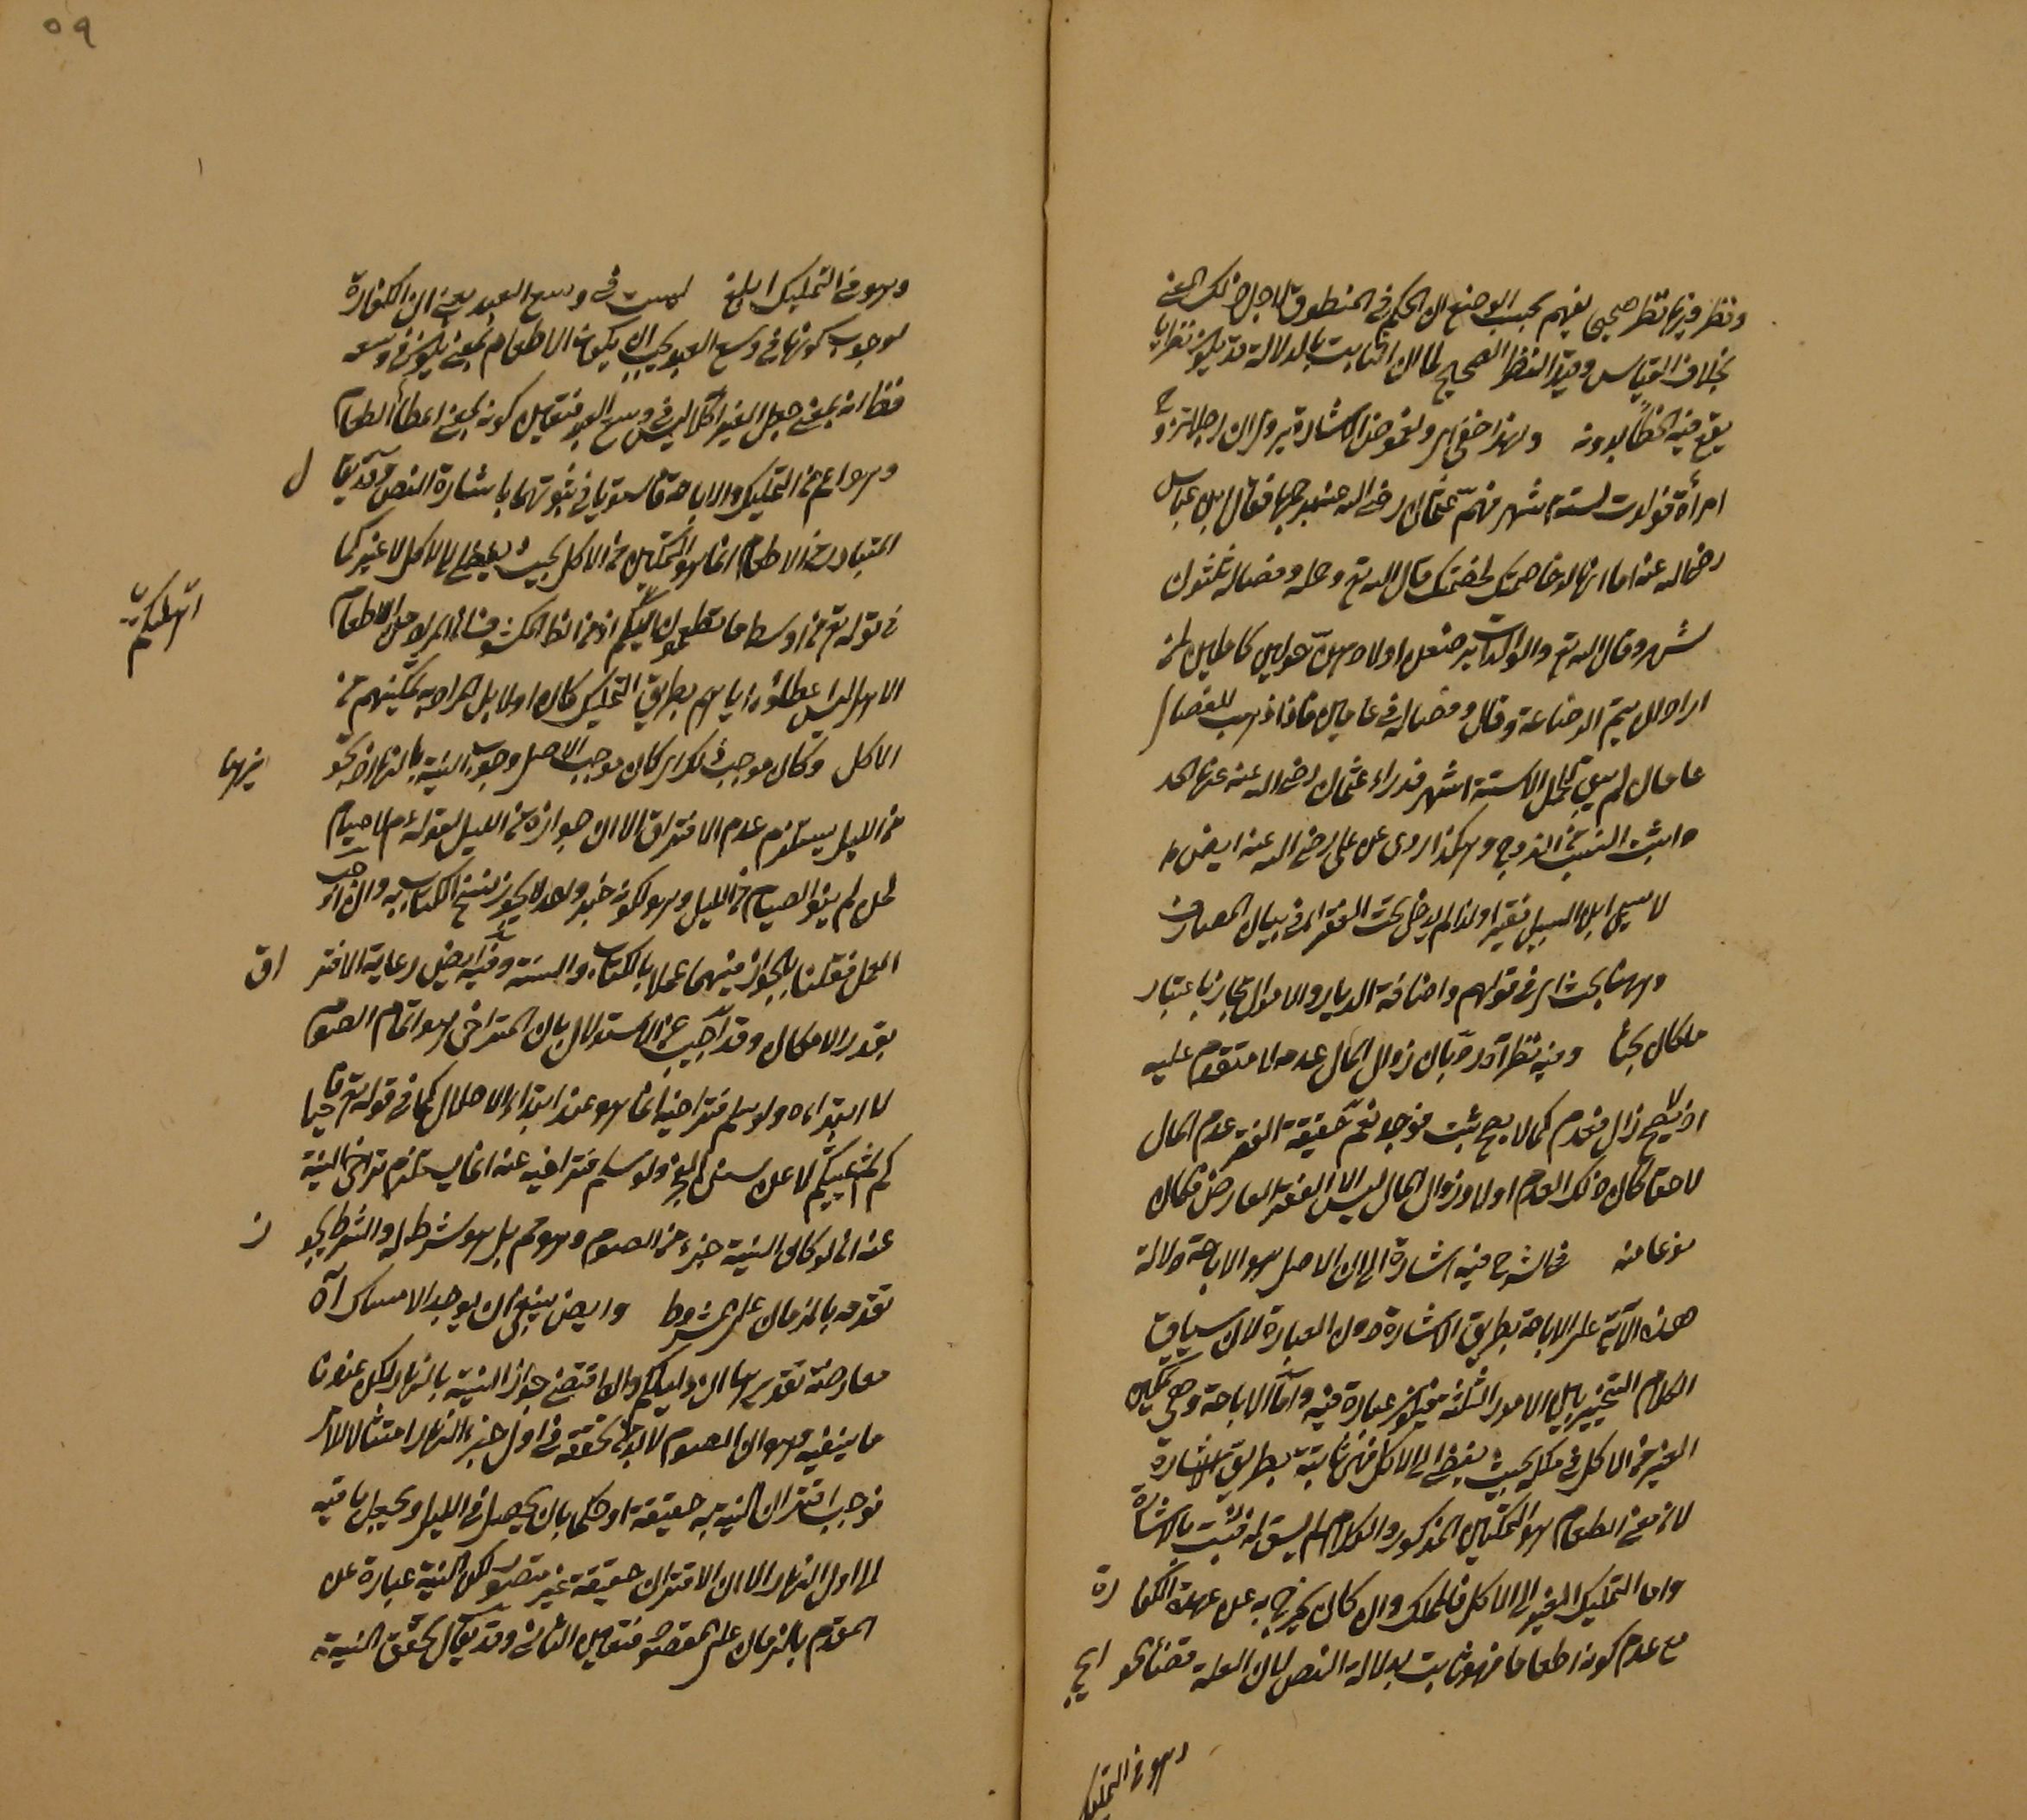 ونظر فيها نظر صحيح يفهم بحسب الوضع ان الحكم في المنطوق لاجل ذلك المعنى
بخلاف القياس وقيد النظر الصحيح لما ان الثابت بالدلالة قد يكون نظريا
يقع فيه الخطأ بدونه ولهذا خفى اى ولغموض الاشارة يروى ان رجلا تزوج
امرأة فولدت لستة اشهر فهم عثمان رضى الله عنه برجمها فقال ابن عباس
رضى الله عنه اما انها لو خاصمتك لخصمتك قال الله تع وحمله وفصاله ثلثون
شهر وقال الله تع والوالدات يرضعن اولادهن حولين كاملين لمن
اراد ان يتم الرضاعة وقال وفصاله في عامين فاذا ذهب للفصال
عامان لم يبق للحمل الا ستة اشهر فدراء عثمان رضى الله عنه عنها الحد
واثبت النسب من الزوج وهكذا روى عن على رضى الله عنه ايضا
لا يسمى ابن السبيل فقيرا ولذا لم يدخل تحت الفقراء في بيان المصارف
وههنا بحث اى في قولهم واضافة الديار والاموال مجاز باعتبار
ما كان بحث وفيه نظر اورد بان زوال المال عدمه لا متقدم عليه
اذ يصح زال فعدم كما لا يصح ثبت فوجد نعم حقيقة الفقر عدم المال
لاحقا كان ذلك العدم اولا وزوال المال ليس الا الفقر العارض فكان
نوعا منه في الشرح فيه اشارة الى ان الاصل هو الاباحة دلالة
هذه الآية على الاباحة بطريق الاشارة دون العبارة لان سياق
الكلام التخيير بين الامور الثلثة فيكون عبارة فيه واما الاباحة وهي تمكين
الغير من الاكل في ملكه بحيث يفضى الى الاكل فهى ثابتة بطريق الاشارة
لان معنى اطعام هو التمكين المذكور والكلام لم يسق له فثبت بالاشارة
واما التمليك المفيد الى الاكل فالملك وان كان يخرج به عن عهدة الكفارة
مع عدم كونه اطعاما فهو ثابت بدلالة النص لان العلة قضاء الحوايج
وهو في التمليك
٥٩
وهو في التمليك ابلغ ليست في وسع العبد يعنى ان الكفارة
لوجوب كونها في وسع العبد يجب ان يكون الاطعام بمعنى يكون في وسعه
فظ انه بمعنى جعل الغير آكلا ليس في وسع العبد فتعين كونه بمعنى اعطاء الطعام
وهو اعم من التمليك والاباحة فاستويا في ثبوتهما باشارة النص وقد يقال
المتبادر من الاطعام انما هو التمكين من الاكل بحيث يفضى الى الاكل لا غير كما
في قوله تع من اوسط ما تطعمون اهليكم اذ من الظ المكشوف انه المراد من الاطعام
الاهل ليس اعطاء اياهم بطريق التمليك كان اولا بل المراد به تمكينهم من
الاكل وكان موجب ذلك اى كان موجب الاصل وجوب النية بالنهار نحو
من الليل يستلزم عدم الافتراق الا ان جوازه من الليل بقوله عم لا صيام
لمن لم ينو الصيام من الليل وهو لكونه خبر واحد لا يجوز نسخ الكتاب به وان اوجب
العمل فقلنا بالجواز فيهما عملا بالكتاب والسنة وفيه ايض رعاية الافتراق
بقدر الامكان وقد اجيب عن الاستدلال بان المتراخى هو اتمام الصوم
لا ابتداءه ولو سلم فتراخيه انما هو عند ابتداء الاحلال كما في قوله تع فاحيا
كم ثم يميتكم لا عن سنن البخ ولو سلم فتراخيه عنه انما يستلزم تراخى النية
عنه ان لو كان النية جزء من الصوم وهو مم بل هو شرط له والشرط يجوز
تقدمه بالزمان على المشروط وايض ينبغى ان يوجد الامساك آه
معارضة تقديرها ان دليلكم وان اقتضى جواز النية بالنهار لكن عندنا
ما ينفيه وهو ان الصوم لا بد من تحققه في اول جزء النهار امتثالا للامر
فوجب اقتران النية به حقيقة او حكما بان يحصل في الليل ويجعل باقيه
الى اول النهار الا ان الاقتران حقيقة غير متصور لكن النية عبارة عن
المقدم بالزمان على المقصود فتعين الثانى وقد يقال تحقق النية